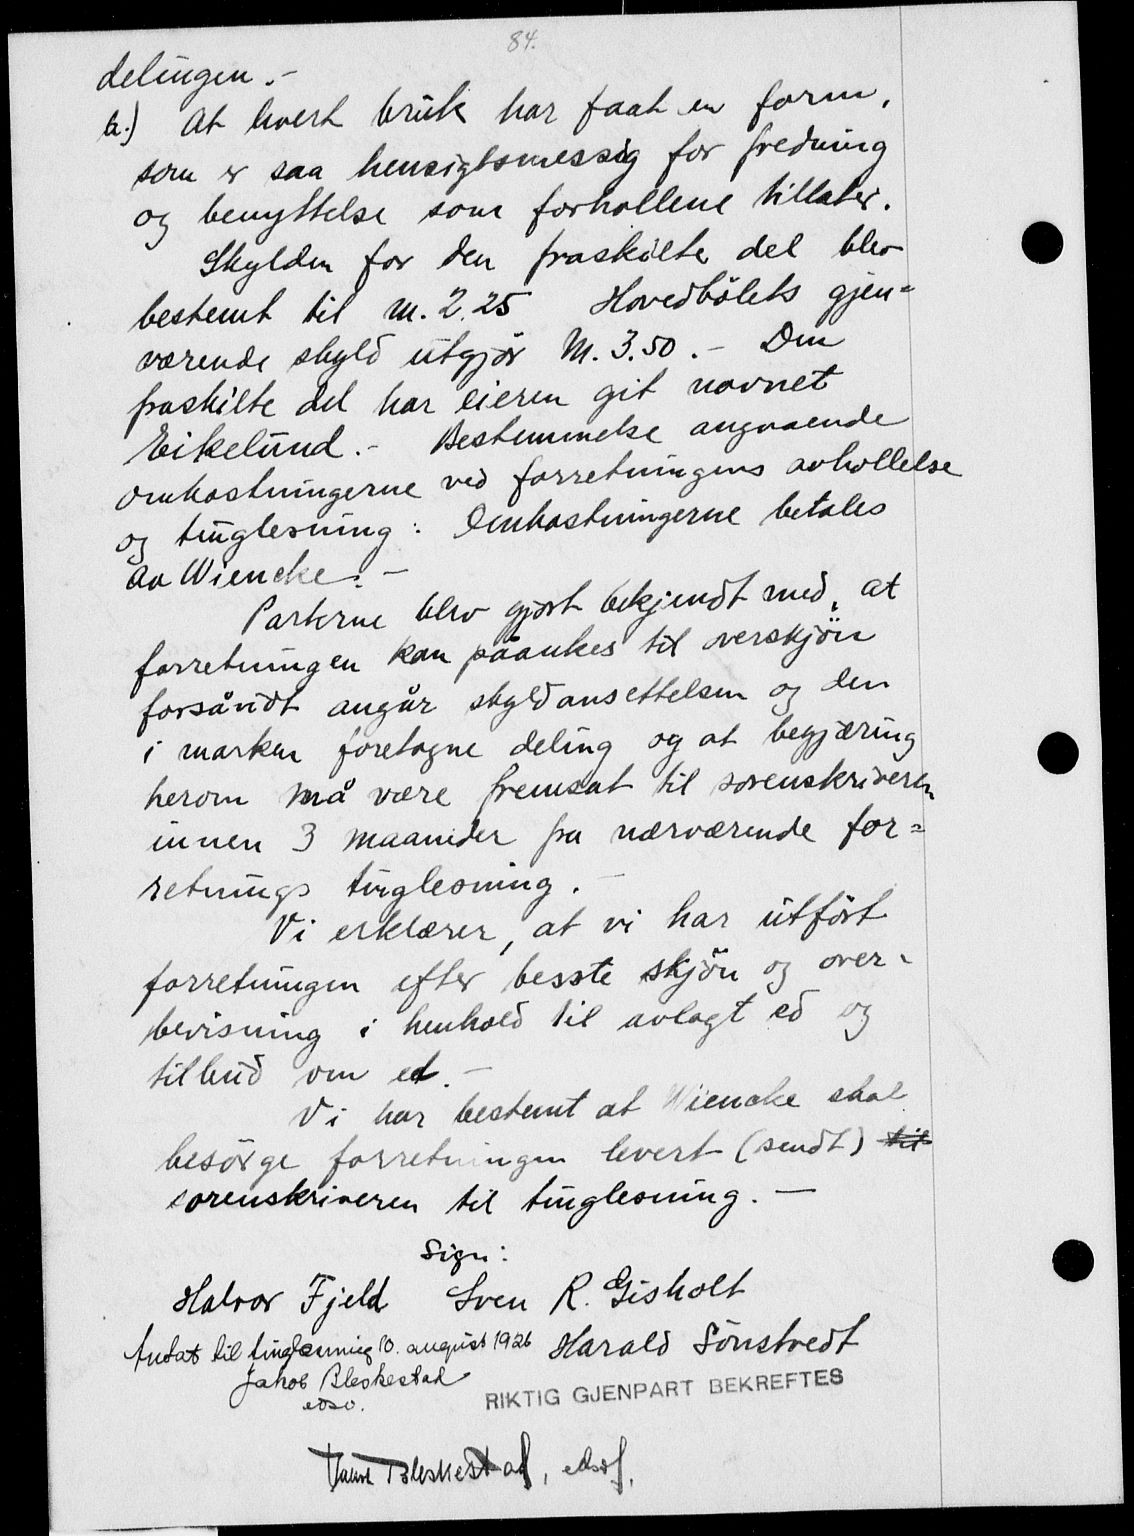 84.
delingen.-
b.) At hvert bruk har faat en form,
som er saa hensigtsmessig for fredning
og benyttelse som forhollene tillater.
Skylden for den fraskilte del blev
bestemt til m. 2.25 Hovedbölets gjen=
værende skyld utgjör M. 3.50.- Den
fraskilte del har eieren git navnet
Eikelund.- Bestemmelse angaaende
omkostningerne ved forretningens avhollelse
og tinglesning: Omkostningerne betales
av Wiencke.-
Parterne blev gjort bekjendt med, at
forretningen kan påankes til overskjön
forsåvidt angår skyldansettelsen og den
i marken foretagne deling og at begjæring
herom må være fremsat til sorenskriveren
innen 3 maaneder fra nærværende for=
retnings tinglesning.-
Vi erklærer, at vi har utfört
forretningen efter besste skjön og over-
bevisning i henhold til avlagt ed og
tilbud om ed.-
Vi har bestemt at Wiencke skal
besörge forretningen levert (sendt) til
sorenskriveren til tinglesning.-
Sign:
Halvor Fjeld Sven R. Gisholt
Antat til tinglesning 10. august 1926 Harald Sönstvedt
Jakob Bleskestad
edsv.
RIKTIG GJENPART BEKREFTES
Jakob Bleskestad, edsf.